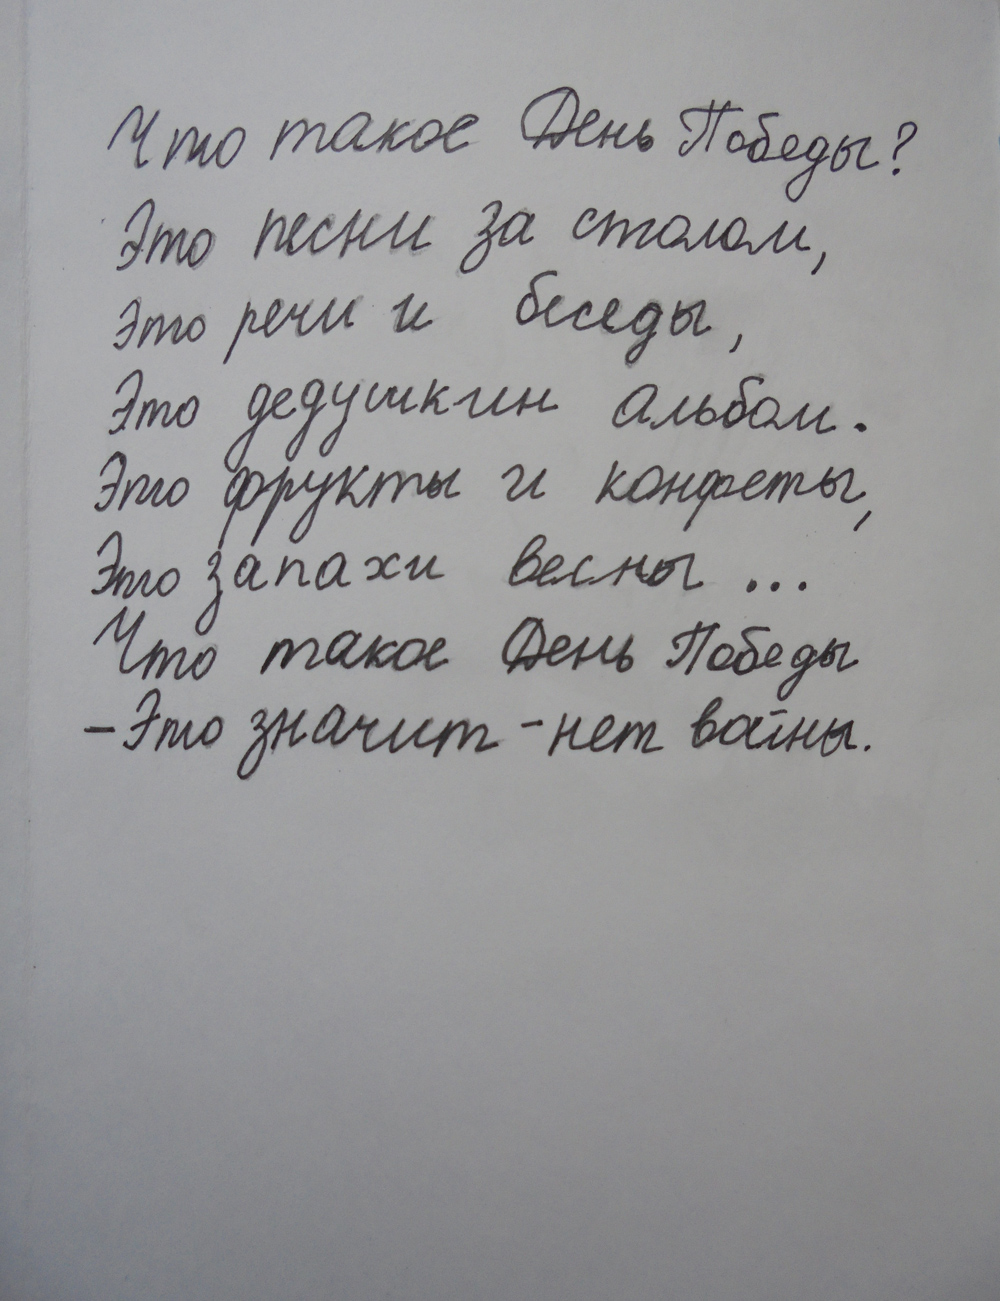 Что такое День Победы?
Это песни за столом,
Это речи и беседы,
Это дедушкин альбом.
Это фрукты и конфеты,
Это запахи весны ...
Что такое День Победы
-Это значит -нет войны.